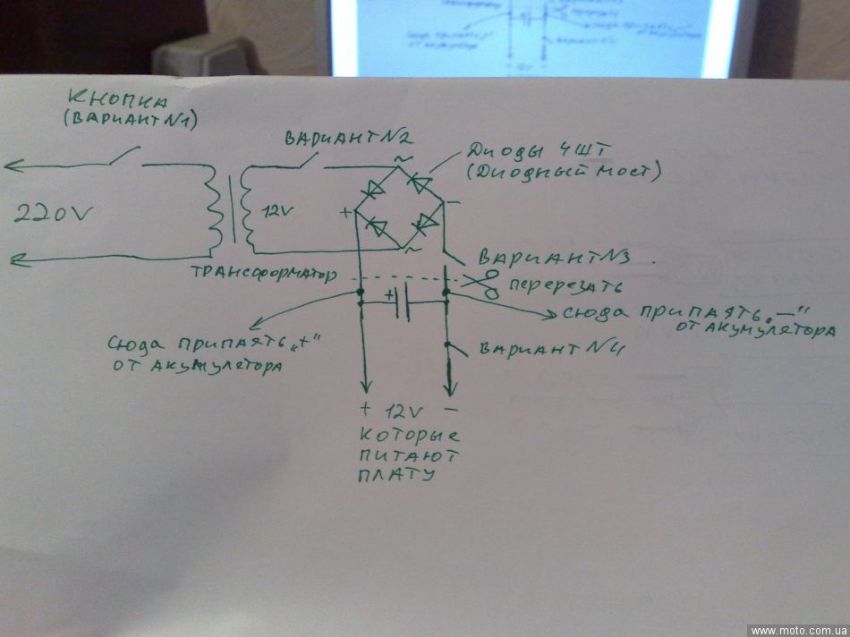 КНОПКА
(ВАРИАНТ N1)
ВАРИАНТ N2
~
Диоды 4шт
(Диодный мост)
220V
12V
+
−
~
ВАРИАНТ N3
ТРАНСФОРМАТОР
перерезать
+
сюда припаять „—"
от акумулятора
Сюда припаять „+"
от акумулятора
ВАРИАНТ N4
+ 12V −
которые
питают
плату
www.moto.com.ua